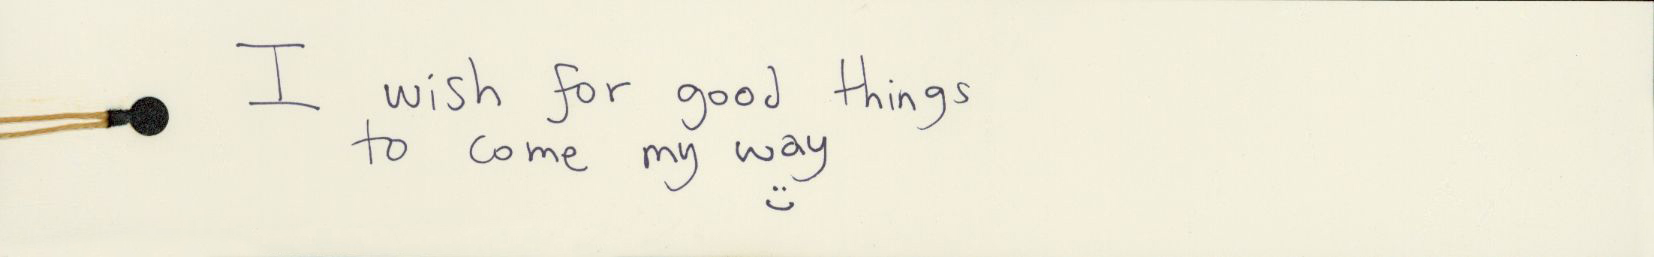 I wish for good things
to come my way
:)